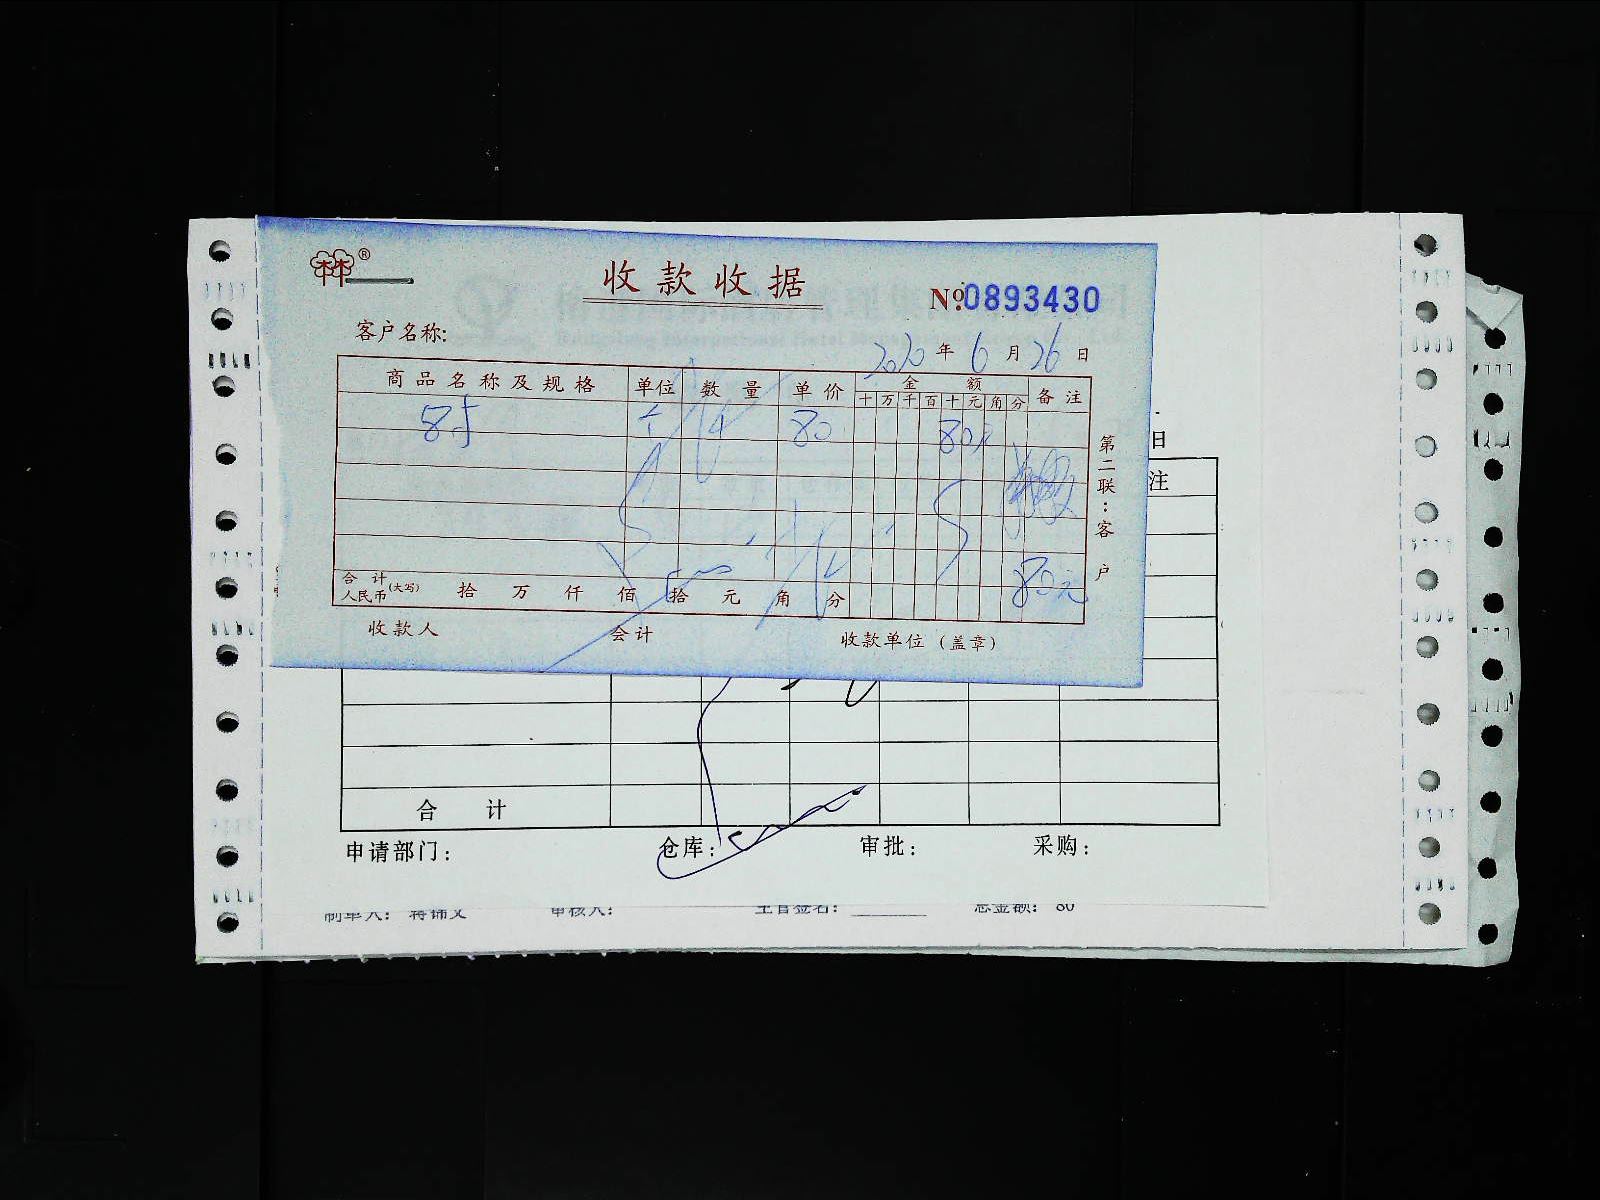 林®
收款收据
№:0893430
客户名称:
2020年6月26日
商品名称及规格 单位 数量 单价 金额 备注
十万千百十元角分
8寸 个 80 80元
第二联:客户
80元
合计人民币(大写) 拾 万 仟 佰 拾 元 角 分
收款人 会计 收款单位(盖章)
日
注
合计
申请部门: 仓库: 审批: 采购:
制单人: 蒋锦文 审核人: 主管签名: 总金额: 80